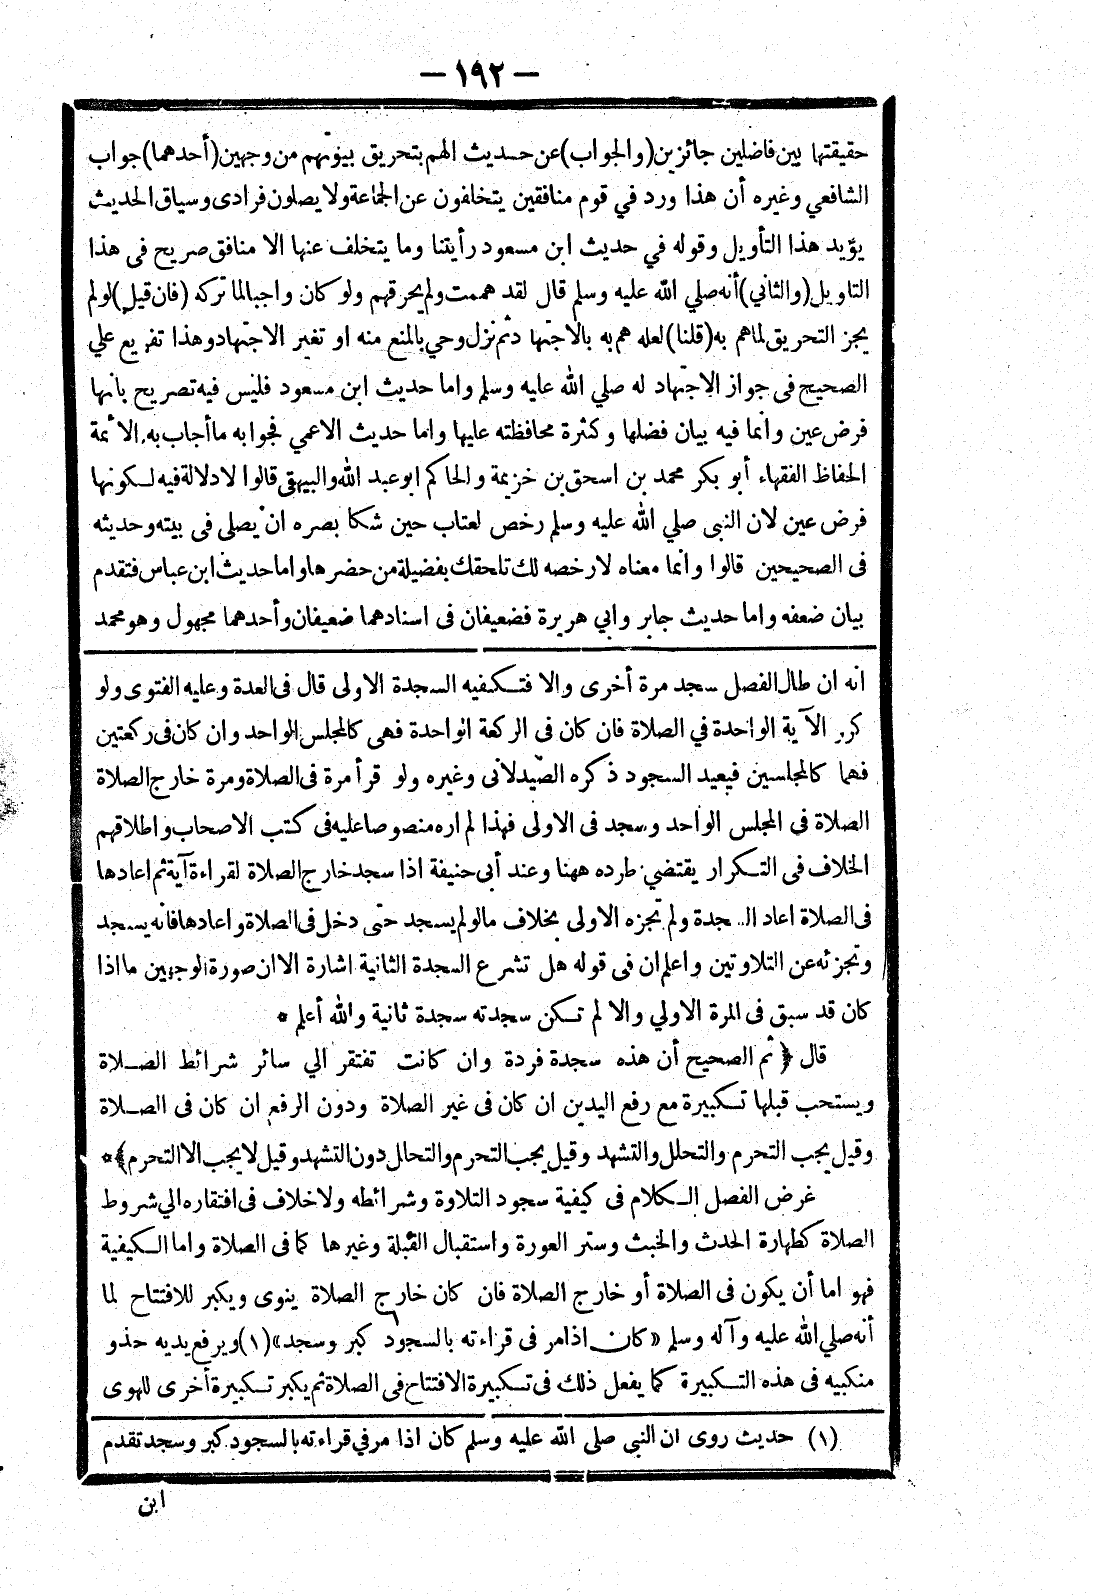 — ١٩٢ —
حقيقتها بين فاضلين جائزين (والجواب) عن حديث الهم بتحريق بيوتهم من وجهين (أحدهما) جواب
الشافعي وغيره أن هذا ورد في قوم منافقين يتخلفون عن الجماعة ولا يصلون فرادى وسياق الحديث
يؤيد هذا التأويل وقوله في حديث ابن مسعود رأيتنا وما يتخلف عنها الا منافق صريح فى هذا
التاويل (والثاني) أنه صلي الله عليه وسلم قال لقد هممت ولم يحرقهم ولو كان واجبا لما تركه (فان قيل) لو لم
يجز التحريق لما هم به (قلنا) لعله هم به بالاجتهاد ثم نزل وحي بالمنع منه او تغير الاجتهاد وهذا تفريع علي
الصحيح فى جواز الاجتهاد له صلي الله عليه وسلم واما حديث ابن مسعود فليس فيه تصريح بانها
فرض عين وانما فيه بيان فضلها وكثرة محافظته عليها واما حديث الاعمي فجوابه ما أجاب به الائمة
الحفاظ الفقهاء أبو بكر محمد بن اسحق بن خزيمة والحاكم ابو عبد الله والبيهقى قالوا لا دلالة فيه لكونها
فرض عين لان النبى صلي الله عليه وسلم رخص لعتاب حين شكا بصره ان يصلى فى بيته وحديثه
فى الصحيحين قالوا وانما معناه لا رخصه لك تلحقك بفضيلة من حضرها واما حديث ابن عباس فتقدم
بيان ضعفه واما حديث جابر وابي هريرة فضعيفان فى اسنادهما ضعيفان وأحدهما مجهول وهو محمد
انه ان طال الفصل سجد مرة أخرى والا فتكفيه السجدة الاولى قال فى العدة وعليه الفتوى ولو
كرر الآية الواحدة في الصلاة فان كان فى الركعة الواحدة فهى كالمجلس الواحد وان كان فى ركعتين
فهما كالمجلسين فيعيد السجود ذكره الصيدلانى وغيره ولو قرأ مرة فى الصلاة ومرة خارج الصلاة
الصلاة في المجلس الواحد وسجد فى الاولى فهذا لم اره منصوصا عليه فى كتب الاصحاب واطلاقهم
الخلاف فى التكرار يقتضي طرده ههنا وعند أبى حنيفة اذا سجد خارج الصلاة لقراءة آية ثم اعادها
فى الصلاة اعاد السجدة ولم تجزه الاولى بخلاف مالو لم يسجد حتى دخل فى الصلاة واعادها فانه يسجد
وتجزئه عن التلاوتين واعلم ان فى قوله هل تشرع السجدة الثانية اشارة الا ان صورة الوجهين ما اذا
كان قد سبق فى المرة الاولي والا لم تكن سجدته سجدة ثانية والله أعلم *
قال ﴿ ثم الصحيح أن هذه سجدة فردة وان كانت تفتقر الي سائر شرائط الصلاة
ويستحب قبلها تكبيرة مع رفع اليدين ان كان فى غير الصلاة ودون الرفع ان كان فى الصلاة
وقيل يجب التحرم والتحلل والتشهد وقيل يجب التحرم والتحلل دون التشهد وقيل لا يجب الا التحرم ﴾ *
غرض الفصل الكلام فى كيفية سجود التلاوة وشرائطه ولا خلاف فى افتقاره الي شروط
الصلاة كطهارة الحدث والخبث وستر العورة واستقبال القبلة وغيرها كما فى الصلاة واما الكيفية
فهو اما أن يكون فى الصلاة أو خارج الصلاة فان كان خارج الصلاة ينوى ويكبر للافتتاح لما
أنه صلي الله عليه وآله وسلم «كان اذا مر فى قراءته بالسجود كبر وسجد» (١) ويرفع يديه حذو
منكبيه فى هذه التكبيرة كما يفعل ذلك فى تكبيرة الافتتاح فى الصلاة ثم يكبر تكبيرة أخرى للهوى
(١) حديث روى ان النبى صلى الله عليه وسلم كان اذا مر في قراءته بالسجود كبر وسجد تقدم
ابن